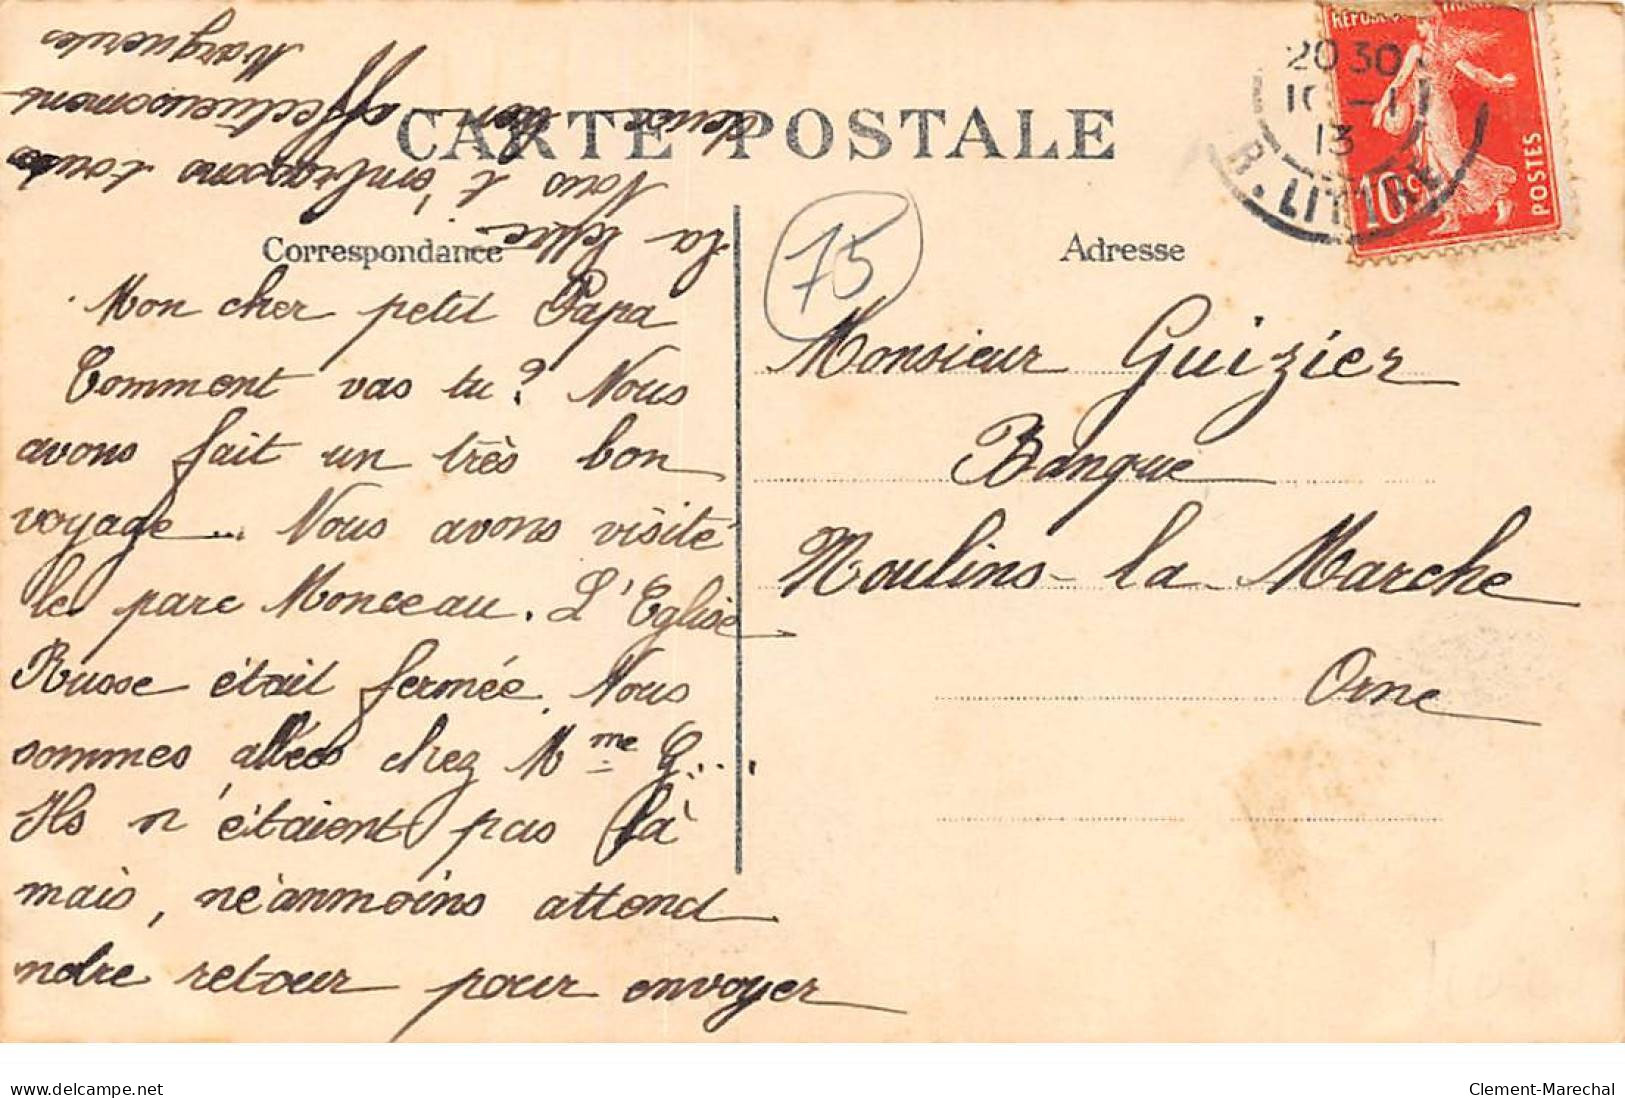 CARTE POSTALE
Correspondance
Adresse
REPUBLIQUE
POSTES
10c
20 30
13
R. LITTRE
75
Mon cher petit Papa
Comment vas tu? Nous
avons fait un très bon
voyage... Nous avons visité
le parc Monceau. L'Eglise
Russe était fermée. Nous
sommes allées chez Mme G....
Ils n'étaient pas là
mais, néanmoins attend
notre retour pour envoyer
la lettre.
Nous t'embrassons tous
deux bien affectueusement
Marguerite
Monsieur Guizier
Banque
Moulins-la-Marche
Orne
www.delcampe.net
Clement-Marechal